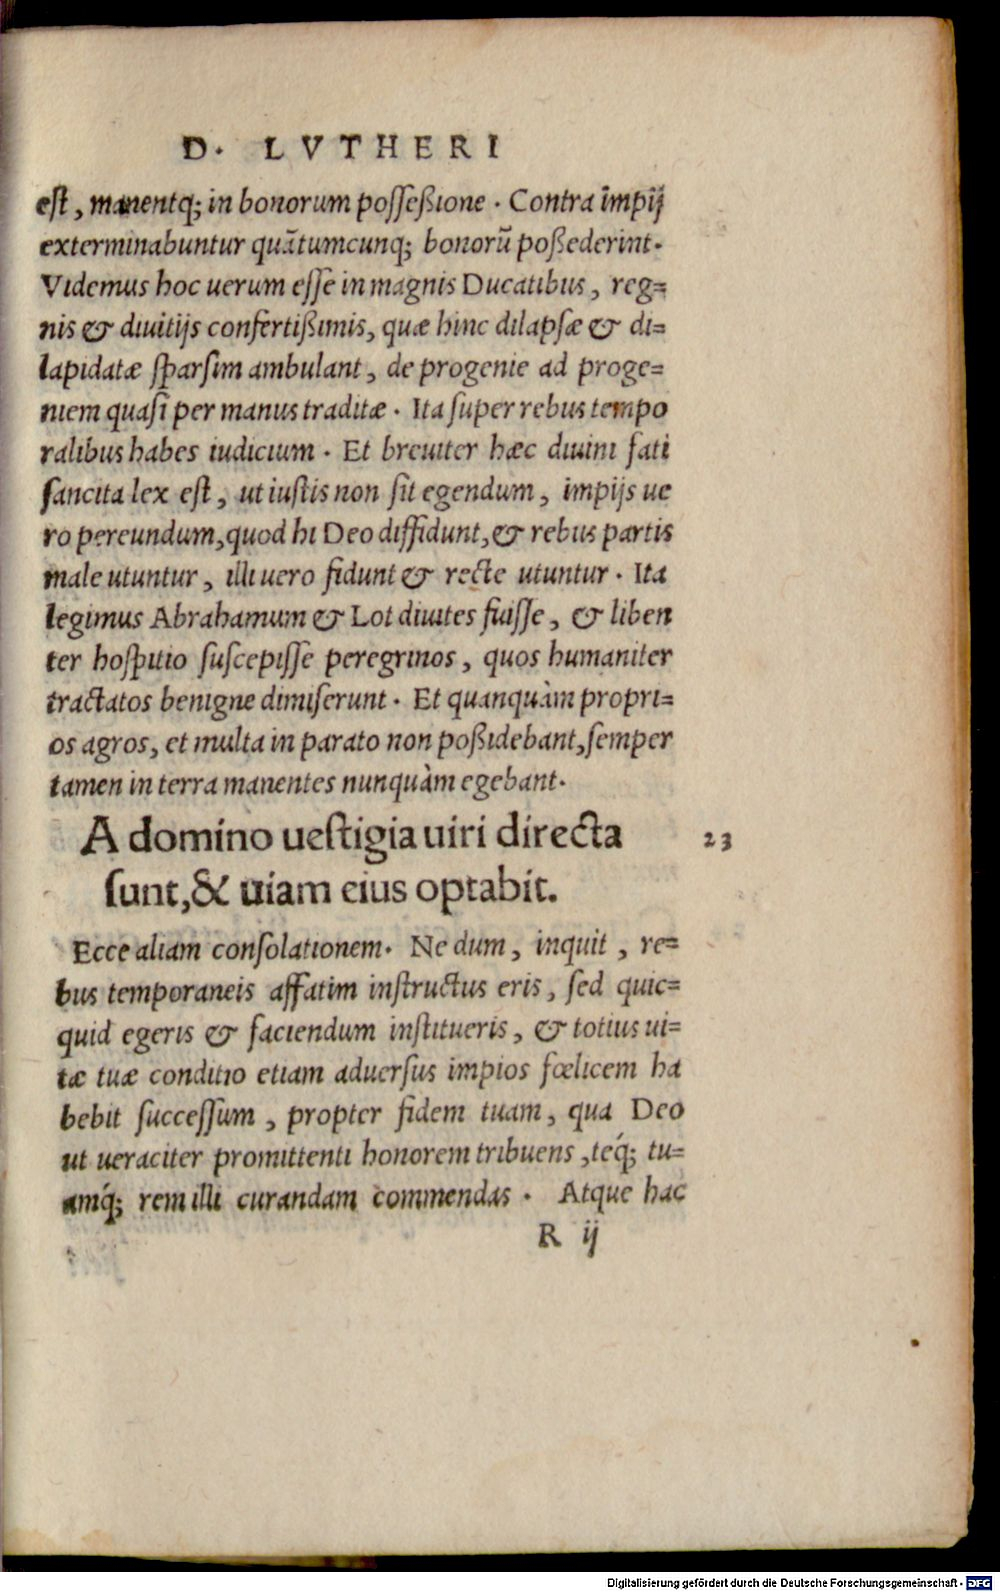 D. LVTHERI
est, manentq; in bonorum posseßione. Contra impij
exterminabuntur quãtumcunq; bonorũ poßederint.
Videmus hoc uerum esse in magnis Ducatibus, reg=
nis & diuitijs confertißimis, quæ hinc dilapsæ & di=
lapidatæ sparsim ambulant, de progenie ad proge=
niem quasi per manus traditæ. Ita super rebus tempo
ralibus habes iudicium. Et breuiter hæc diuini fati
sancita lex est, ut iustis non sit egendum, impijs ue
ro pereundum, quod hi Deo diffidunt, & rebus partis
male utuntur, illi uero fidunt & recte utuntur. Ita
legimus Abrahamum & Lot diuites fuisse, & liben
ter hospitio suscepisse peregrinos, quos humaniter
tractatos benigne dimiserunt. Et quanquàm propri=
os agros, et multa in parato non poßidebant, semper
tamen in terra manentes nunquàm egebant.
A domino uestigia uiri directa 23
sunt, & uiam eius optabit.
Ecce aliam consolationem. Ne dum, inquit, re=
bus temporaneis affatim instructus eris, sed quic=
quid egeris & faciendum institueris, & totius ui=
tæ tuæ conditio etiam aduersus impios fœlicem ha
bebit successum, propter fidem tuam, qua Deo
ut ueraciter promittenti honorem tribuens, teq́; tu=
amq́; rem illi curandam commendas. Atque hac
R ij
Digitalisierung gefördert durch die Deutsche Forschungsgemeinschaft - DFG